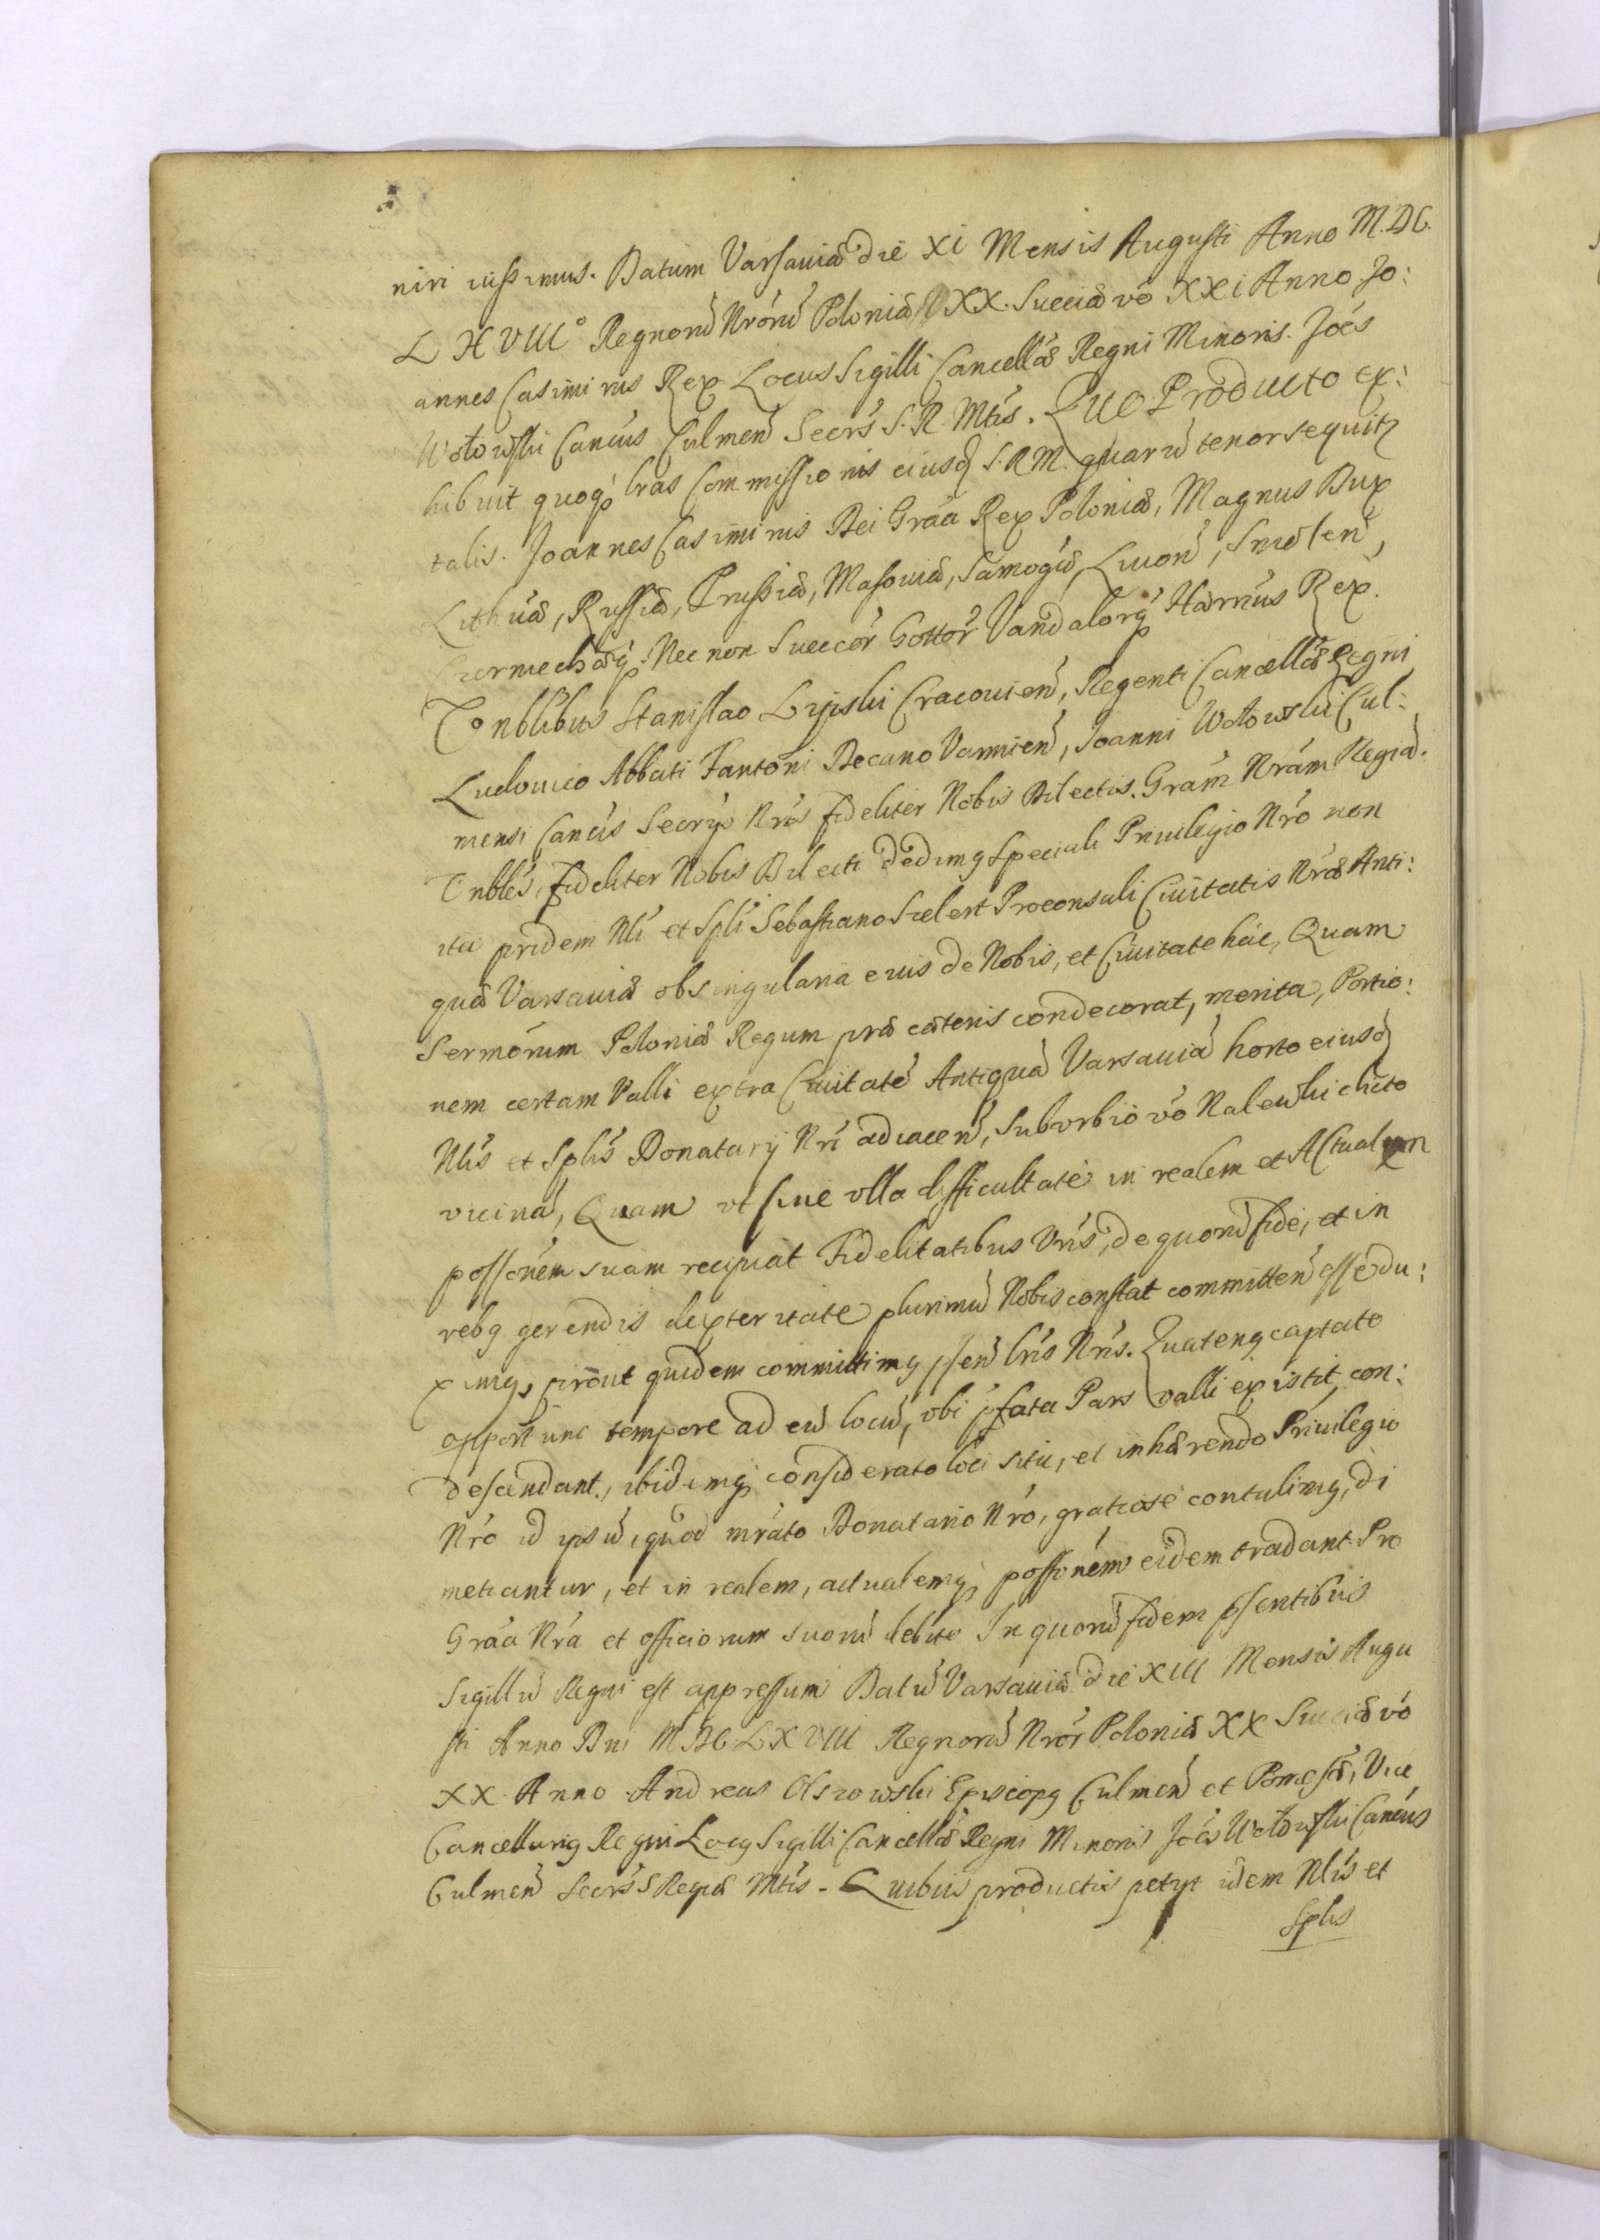 niri iussimus. Datum Varsaviæ die XI Mensis Augusti Anno M.DC.
LXVIII° Regnorū Nrórū Poloniæ XX. Sueciæ vó XXI Anno Jo:
annes Casimirus Rex Locus Sigilli Cancellæ Regni Minoris. Joés
Wołowski Cancús Culmeñ Secrs S.R.Mtis. Quo Producto ex:
hibuit quoq lras Commissionis eiusd S.R.M. quarū tenor sequitr
talis. Joannes Casimirus Dei Gráa Rex Poloniæ, Magnus Dux
Lithuæ, Russiæ, Prussiæ, Masoviæ, Samogæ, Livoñ, Smoleñ,
Czerniechæq Nec non Suecór Gottor Vandalorq Hærrius Rex.
Vnblibus Stanislao Lipski Cracovieñ, Regenti Cancellæ Regni
Ludovico Abbati Fantoni Decano Varmieñ, Joanni Wołowski Cul:
mensi Cancis Secrijs Nris fideliter Nobis Dilectis. Gram Nrám Regiā.
Vnbles, fideliter Nobis Dilecti dedimq speciali Privilegio Nró non
ita pridem Nli et Spli Sebastiano Szelert Proconsuli Civitatis Nræ Anti:
quæ Varsaviæ ob singularia eius de Nobis, et Civitate hac, Quam
Sermórum Poloniæ Regum præ cæteris condecorat, merita, Portio:
nem certam Valli extra Civitatē Antiquā Varsaviā horto eiusd
Nlis et Splis Donatarij Nri adiaceñ, Suburbio vó Nalewki dicto
vicinā, Quam vt sine vlla difficultate in realem et Actualem
possonem suam recipiat Fidelitatibus Vris, de quorū fide, et in
rebq gerendis dexteritate plurimū Nobis constat committeñ esse du:
ximq, prout quidem committimq pseñ lris Nris. Quatenq captato
opportuno tempore ad eū locū, vbi pfata Pars valli existit, con:
descendant, ibidemq considerato loci situ, et inhærendo Privilegio
Nró id ipsū, quod mráto Donatario Nró, gratiose contulimq, di
metiantur, et in realem, actualemq possonem eidem tradant. Pro
Gráa Nrá et officiorum suorū debito In quorū fidem psentibus
Sigillū Regni est appressum Datū Varsaviæ die XIII Mensis Augu
sti Anno Dni MDCLXVIII Regnorū Nrór Poloniæ XX Sueciæ vó
XX Anno Andreas Olszowski Episcopq Culmeñ et Pomesæ, Vice
Cancellariq Regni Locq Sigilli Cancellæ Regni Minoris Joés Wołowski Cancús
Culmeñ Secrs S Regiæ Mtis - Quibus productis petyt idem Nlis et
Splis